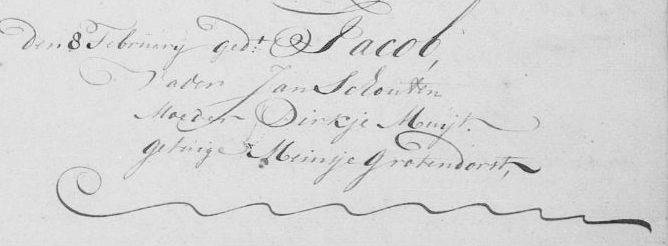 Den 8 Februery ged.t Jacob,
Vader Jan Schouten
Moeder Dirkje Muijt.
getuige Meinsje Grotendorst,